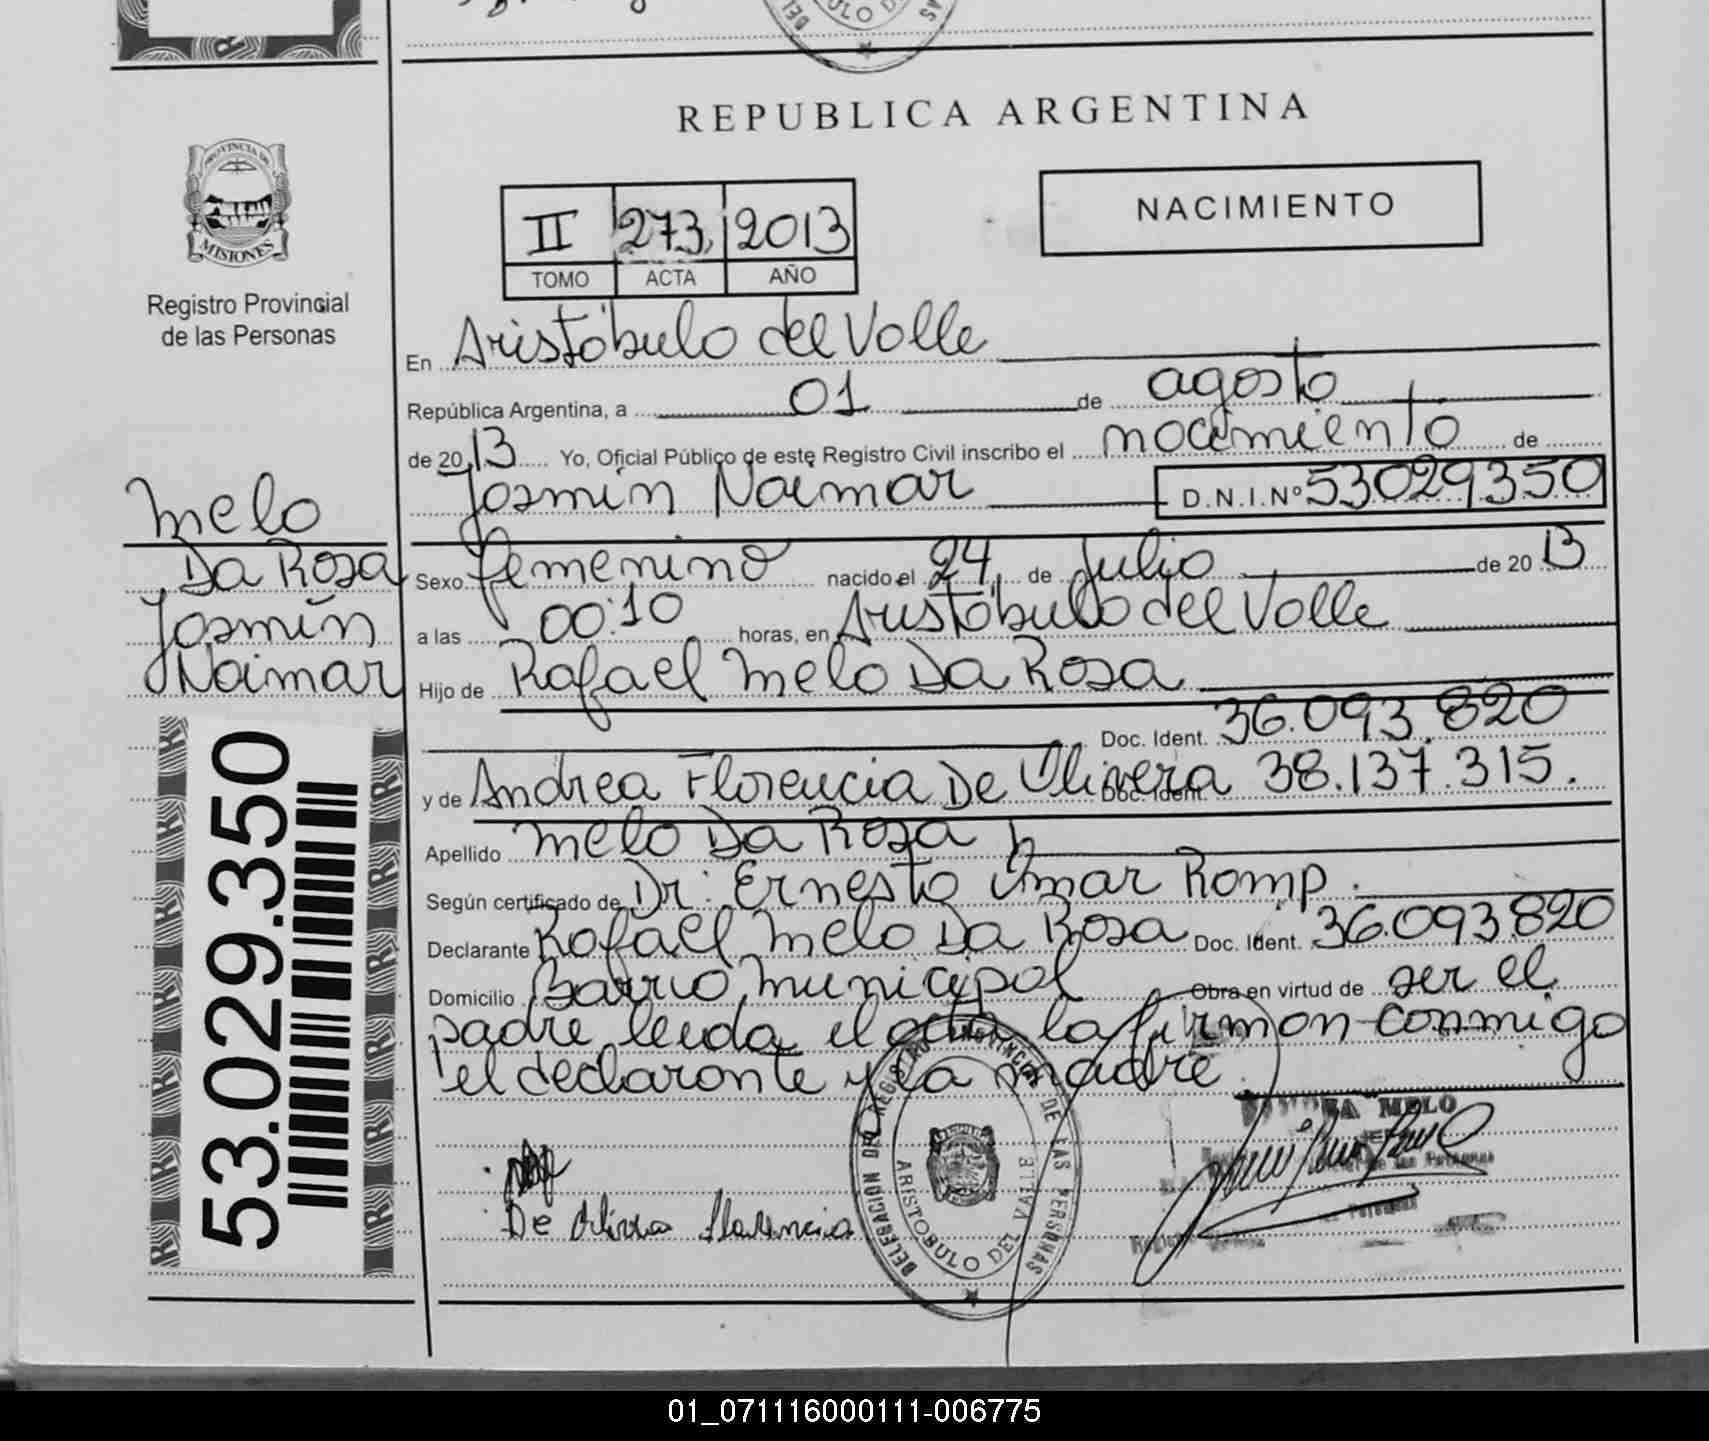 REPUBLICA ARGENTINA
PROVINCIA DE
MISIONES
Registro Provincial
de las Personas
NACIMIENTO
II 273 2013
TOMO ACTA AÑO
En Aristóbulo del Valle
República Argentina, a 01 de agosto
de 2013 Yo, Oficial Público de este Registro Civil inscribo el nacimiento de
Jasmin Naimar D.N.I.Nº 53029350
Melo
Da Rosa
Jasmin
Naimar
Sexo femenino nacido el 24 de Julio de 2013
a las 00:10 horas, en Aristóbulo del Valle
Hijo de Rafael Melo Da Rosa
Doc. Ident. 36.093.820
y de Andrea Florencia De Olivera Doc. Ident. 38.137.315.
Apellido Melo Da Rosa
Según certificado de Dr: Ernesto Omar Romp.
Declarante Rafael Melo Da Rosa Doc. Ident. 36.093.820
Domicilio Barrio Municipal Obra en virtud de ser el
padre leida el acta la firman conmigo
el declarante y la madre.
53.029.350
De Olivera Florencia
DELEGACION DEL REGISTRO PROVINCIAL DE LAS PERSONAS
ARISTOBULO DEL VALLE
MELO
01_071116000111-006775